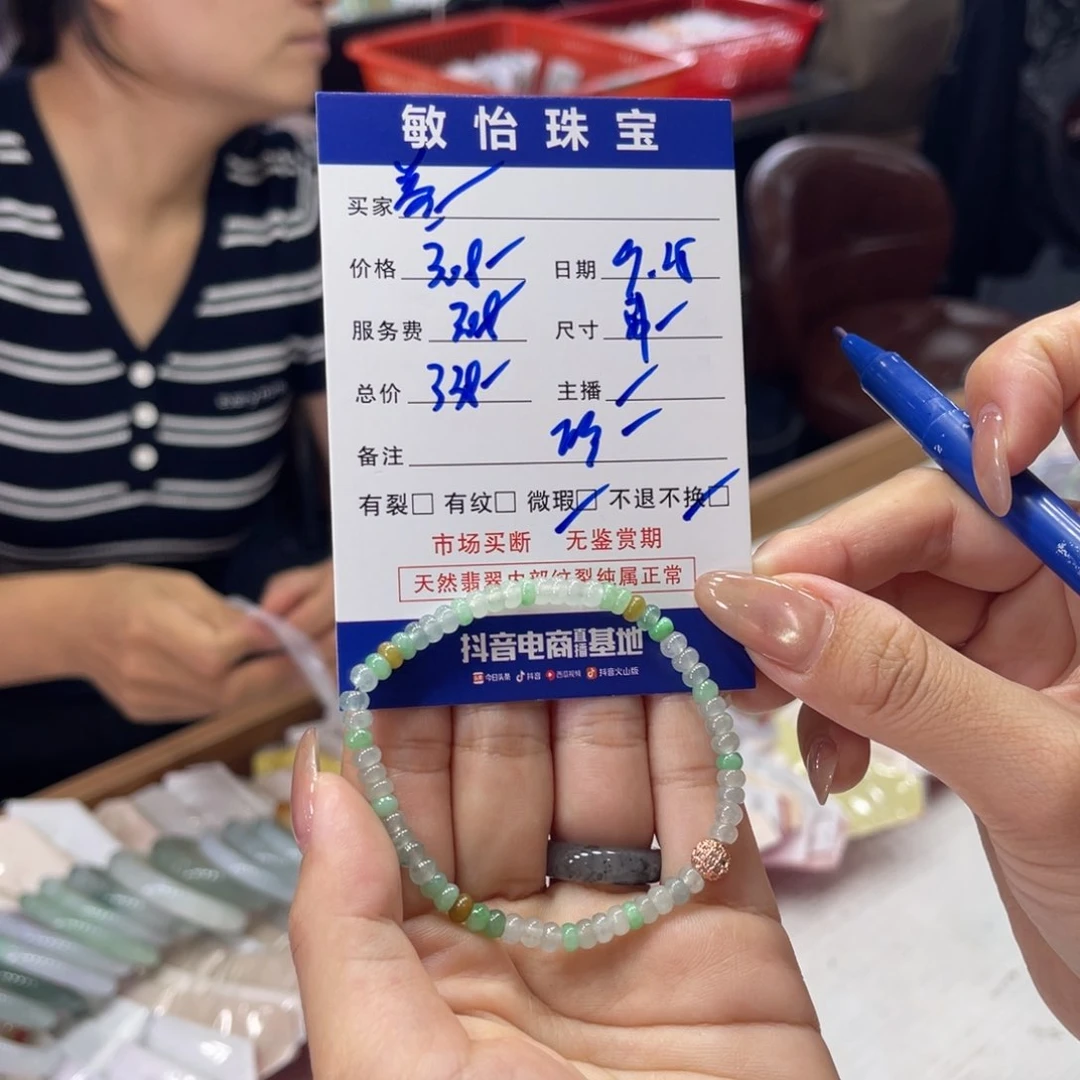 敏怡珠宝
买家
价格 308 日期 9.15
服务费 尺寸
总价 338 主播
备注
有裂□ 有纹□ 微瑕□ 不退不换□
市场买断 无鉴赏期
天然翡翠内部纹裂纯属正常
抖音电商直播基地
今日头条 抖音 西瓜视频 抖音火山版